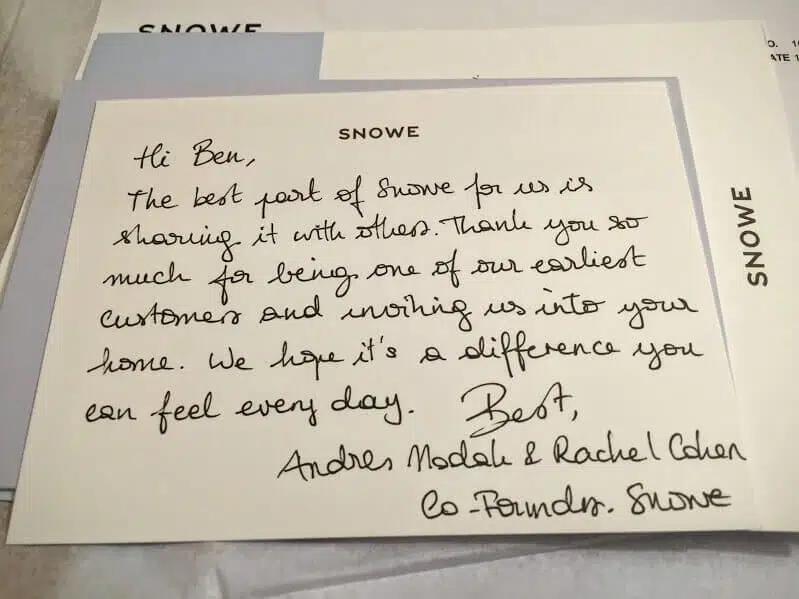 SNOWE
O. 1
ATE 1
SNOWE
Hi Ben,
The best part of Snowe for us is
sharing it with others. Thank you so
much for being one of our earliest
customers and inviting us into your
home. We hope it's a difference you
can feel every day. Best,
Andres Modak & Rachel Cohen
Co-Founders. Snowe
SNOWE